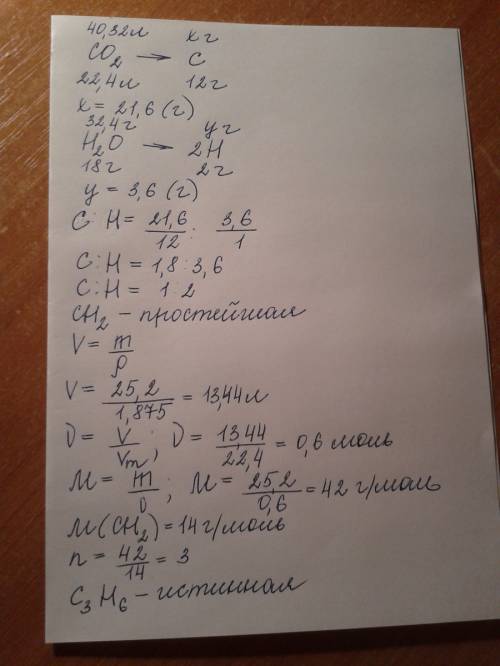 40,32л   x г
CO₂ → C
22,4л   12г
x = 21,6 (г)
32,4г   y г
H₂O → 2H
18г   2г
y = 3,6 (г)
C : H = 21,6/12 : 3,6/1
C : H = 1,8 : 3,6
C : H = 1 : 2
CH₂ – простейшая
V = m/ρ
V = 25,2/1,875 = 13,44л
ν = V/Vm ; ν = 13,44/22,4 = 0,6 моль
M = m/ν ; M = 25,2/0,6 = 42 г/моль
M(CH₂) = 14г/моль
n = 42/14 = 3
C₃H₆ – истинная